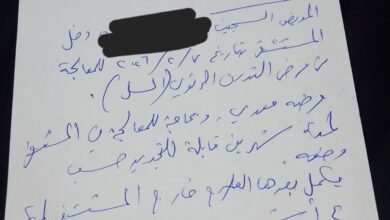 المريض السجين دخل
المستشفى بتاريخ ٢٠٢٦/٢/٧ للمعالجة
من مرض التدرن الرئوي (السل).
مرضه معدي، وبحاجة للمعالجة في المستشفى
لمدة شهرين قابلة للتجديد حسب
وضعه.
يكمل بعدها العلاج خارج المستشفى لمدة